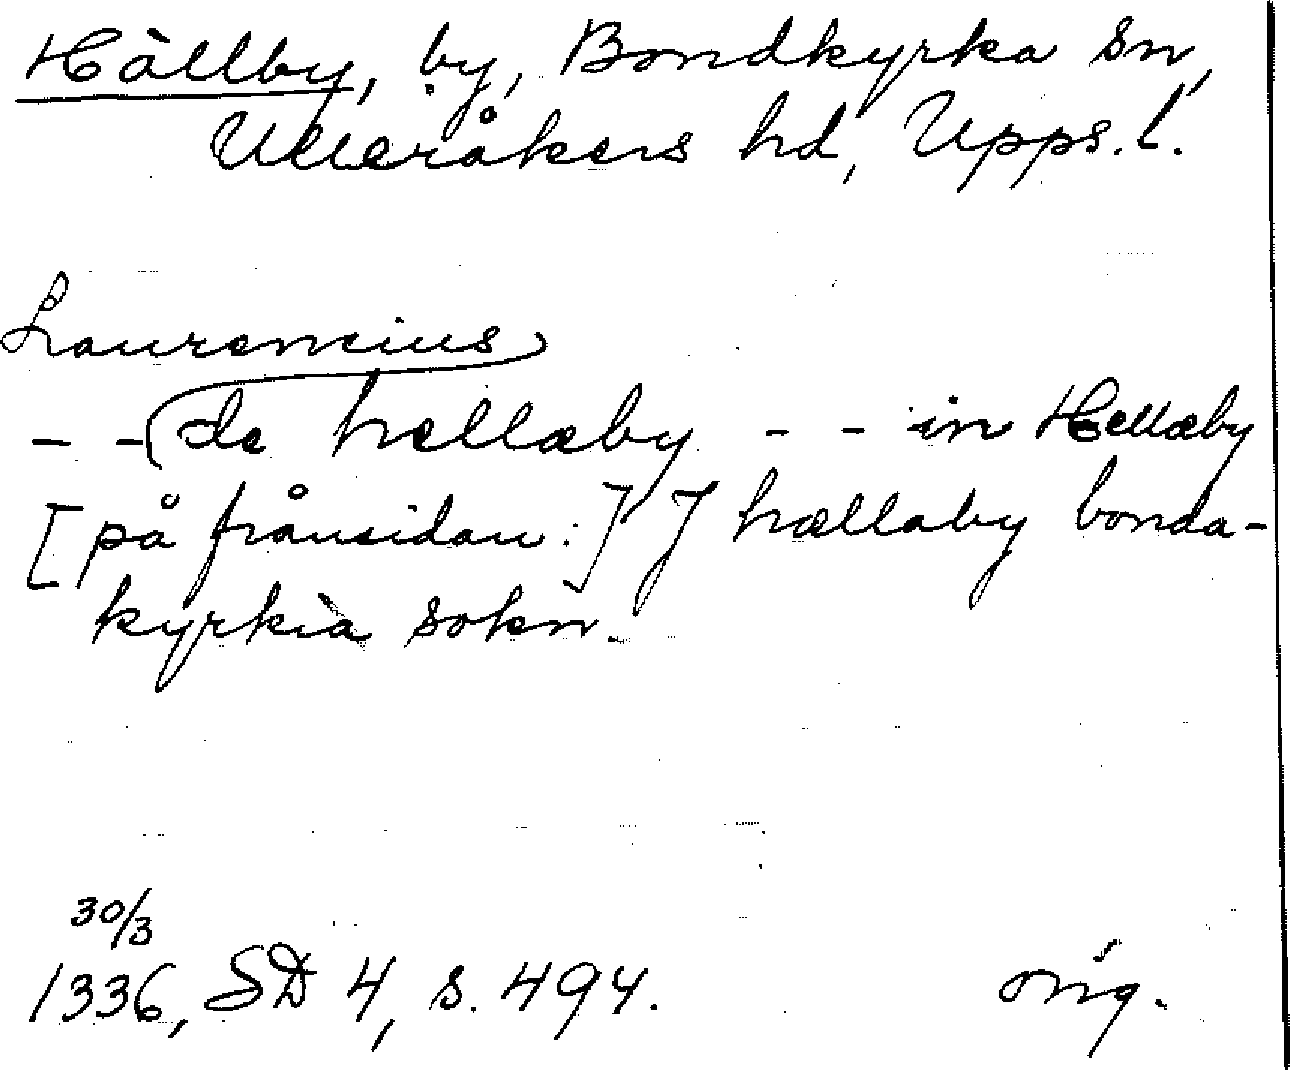 Hällby, by, Bondkyrka sn,
Ulleråkers hd, Upps. l.
Laurencius
- - de hællæby - - in Hellæby
[på frånsidan:] J hællaby bonda-
kyrkia sokn.
30/3
1336, SD 4, s. 494.
orig.